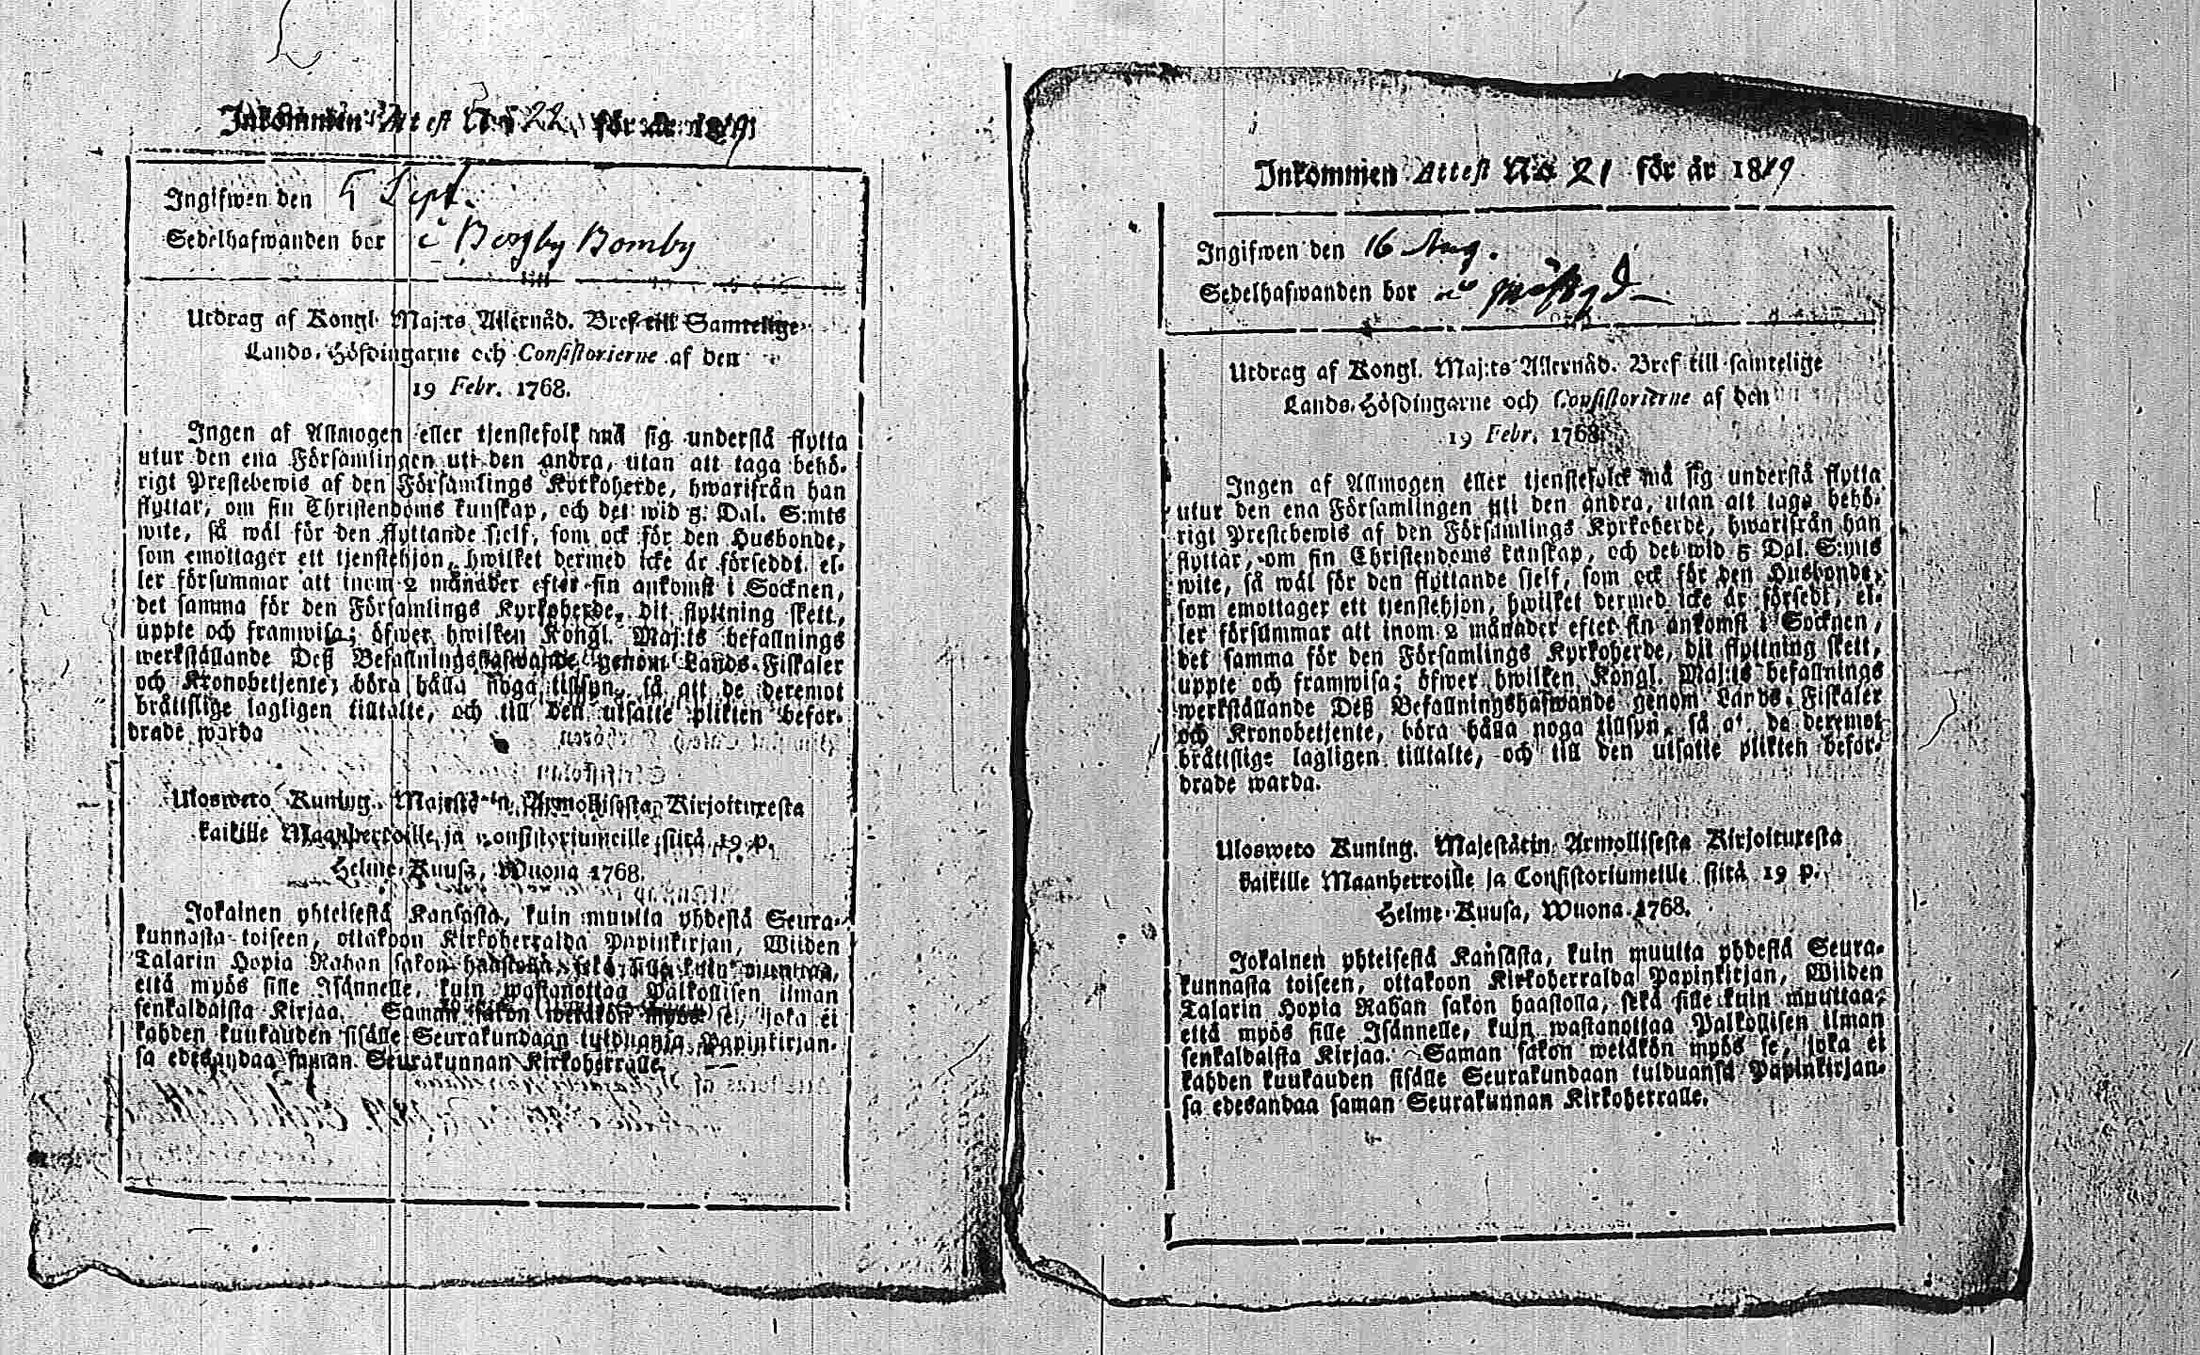 Inkommen Attest No 22 för år 1819
Ingifwen den 5 Sept.
Sedelhafwanden bor i Bergby Bomby
Utdrag af Kongl. Maj:ts Allernåd. Bref till Samtelige
Lands-Höfdingarne och Consistorierne af den
19 Febr. 1768.
Ingen af Allmogen eller tjenstefolk må sig understå flytta
utur den ena Församlingen uti den andra, utan att taga behö-
rigt Prestebewis af den Församlings Kyrkoherde, hwarifrån han
flyttar, om sin Christendoms kunskap, och det wid 5: Dal. S:mts
wite, så wäl för den flyttande sjelf, som ock för den Husbonde,
som emottager ett tjenstehjon, hwilket dermed icke är förseddt, el-
ler försummar att inom 2 månader efter sin ankomst i Socknen,
det samma för den Församlings Kyrkoherde, dit flyttning skett,
uppte och framwisa; öfwer hwilken Kongl. Maj:ts befallnings
werkställande Deß Befallningshafwande genom Lands-Fiskaler
och Kronobetjente, böra hålla noga tillsyn, så att de deremot
bråttslige lagligen tilltalte, och till den utsatte plikten befor-
drade warda
Ulosweto Kuning. Majestätin Armollisesta Kirjoituxesta
kaikille Maanherroille ja Consistoriumeille siitä 19 p.
Helme-Kuusa, Wuona 1768.
Jokainen yhteisestä Kansasta, kuin muutta yhdestä Seura-
kunnasta toiseen, ottakoon Kirkoherralda Papinkirjan, Wiiden
Talarin Hopia Rahan sakon haastolla, sekä sille kuin muuttaa,
että myös sille Isännelle, kuin wastanottaa Palkollisen ilman
senkaldaista Kirjaa. Saman sakon wetäkön myös se, joka ei
kahden kuukauden sisälle Seurakundaan tulduansa Papinkirjan-
sa edesandaa saman Seurakunnan Kirkoherralle.
Inkommen Attest No 21 för år 1819
Ingifwen den 16 Aug.
Sedelhafwanden bor
Utdrag af Kongl. Maj:ts Allernåd. Bref till samtelige
Lands-Höfdingarne och Consistorierne af den
19 Febr. 1768.
Ingen af Allmogen eller tjenstefolck må sig understå flytta
utur den ena Församlingen uti den andra, utan att taga behö-
rigt Prestebewis af den Församlings Kyrkoherde, hwarifrån han
flyttar, om sin Christendoms kunskap, och det wid 5 Dal. S:mts
wite, så wäl för den flyttande sjelf, som ock för den Husbonde,
som emottager ett tjenstehjon, hwilket dermed icke är försedt, el-
ler försummar att inom 2 månader efter sin ankomst i Socknen,
det samma för den Församlings Kyrkoherde, dit flyttning skett,
uppte och framwisa; öfwer hwilken Kongl. Maj:ts befallnings
werkställande Deß Befallningshafwande genom Lands-Fiskaler
och Kronobetjente, böra hålla noga tillsyn, så at de deremot
bråttslige lagligen tilltalte, och till den utsatte plikten befor-
drade warda.
Ulosweto Kuning. Majestätin Armollisesta Kirjoituxesta
kaikille Maanherroille ja Consistoriumeille siitä 19 p.
Helme-Kuusa, Wuona 1768.
Jokainen yhteisestä Kansasta, kuin muutta yhdestä Seura-
kunnasta toiseen, ottakoon Kirkoherralda Papinkirjan, Wiiden
Talarin Hopia Rahan sakon haastolla, sekä sille kuin muuttaa,
että myös sille Isännelle, kuin wastanottaa Palkollisen ilman
senkaldaista Kirjaa. Saman sakon wetäkön myös se, joka ei
kahden kuukauden sisälle Seurakundaan tulduansa Papinkirjan-
sa edesandaa saman Seurakunnan Kirkoherralle.